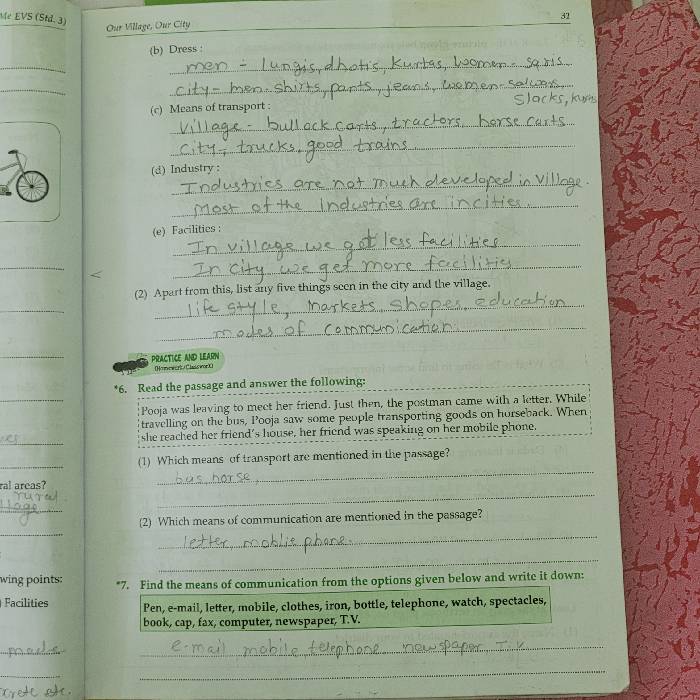 Me EVS (Std. 3)
Our Village, Our City
31
(b) Dress :
men - lungis, dhotis, kurtas, women - saris
city - men - shirts, pants, jeans, women - salwars
slacks, kurtis
(c) Means of transport :
Village - bullock carts, tractors, horse carts
city - trucks, good trains
(d) Industry :
Industries are not much developed in village.
Most of the Industries are in cities.
(e) Facilities :
In village we get less facilities
In city we get more facilities
(2) Apart from this, list any five things seen in the city and the village.
life style, markets shopes, education
modes of communication.
PRACTICE AND LEARN
(Homework/Classwork)
*6. Read the passage and answer the following:
Pooja was leaving to meet her friend. Just then, the postman came with a letter. While
travelling on the bus, Pooja saw some people transporting goods on horseback. When
she reached her friend's house, her friend was speaking on her mobile phone.
(1) Which means of transport are mentioned in the passage?
bus, horse,
(2) Which means of communication are mentioned in the passage?
letter, moblie phone.
*7. Find the means of communication from the options given below and write it down:
Pen, e-mail, letter, mobile, clothes, iron, bottle, telephone, watch, spectacles,
book, cap, fax, computer, newspaper, T.V.
e-mail mobile telephone newspaper T.V
ral areas?
rural
llage
wing points:
Facilities
made
crete etc.